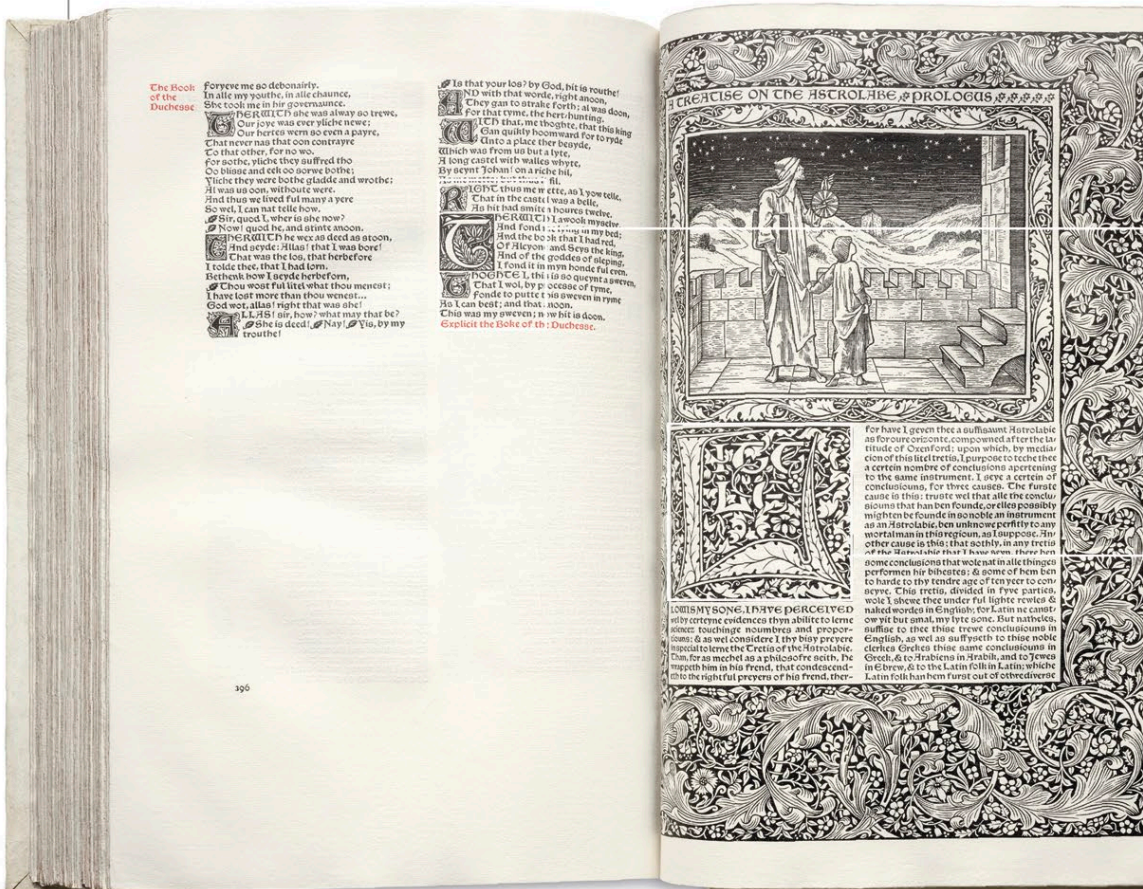 The Book
of the
Duchesse
foryeve me so debonairly.
In alle my youthe, in alle chaunce,
She took me in hir governaunce.
THERWITH she was alway so trewe,
Our joye was ever yliche newe;
Our hertes wern so even a payre,
That never nas that oon contrayre
To that other, for no wo.
for sothe, yliche they suffred tho
Oo blisse and eek oo sorwe bothe;
Yliche they were bothe gladde and wrothe;
Al was us oon, withoute were.
And thus we lived ful many a yere
So wel, I can nat telle how.
Sir, quod I, wher is she now?
Now! quod he, and stinte anoon.
THERWITH he wex as deed as stoon,
And seyde: Allas! that I was bore!
That was the los, that herbefore
I tolde thee, that I had lorn.
Bethenk how I seyde herbeforn,
Thou wost ful litel what thou menest;
I have lost more than thou wenest...
God wot, allas! right that was she!
ALLAS! sir, how? what may that be?
She is deed! Nay! Yis, by my
trouthe!
Is that your los? by God, hit is routhe!
AND with that worde, right anoon,
They gan to strake forth; al was doon,
for that tyme, the hert-hunting.
WITH that, me thoghte, that this king
Gan quikly hoomward for to ryde
Unto a place ther besyde,
Which was from us but a lyte,
A long castel with walles whyte,
By seynt Johan! on a riche hil,
fil.
RIGHT thus me mette, as I yow telle,
That in the castel was a belle,
As hit had smiten houres twelve.
THERWITH I awook myselve,
And fond lying in my bed;
And the book that I had red,
Of Alcyon and Seys the king,
And of the goddes of sleping,
I fond it in myn honde ful even.
THOGHTE I, this is so queynt a sweven,
That I wol, by processe of tyme,
fonde to putte this sweven in ryme
As I can best; and that anoon.
This was my sweven; now hit is doon.
Explicit the Boke of the Duchesse.
196
A TREATISE ON THE ASTROLABE PROLOGUS
LITEL
LOWIS MY SONE, I HAVE PERCEIVED
wel by certeyne evidences thyn abilite to lerne
sciences touchinge noumbres and propor-
ciouns; & as wel considere I thy bisy preyere
in special to lerne the Tretis of the Astrolabie.
Than, for as mechel as a philosofre seith, he
wrappeth him in his frend, that condescend-
eth to the rightful preyers of his frend, ther-
for have I geven thee a suffisaunt Astrolabie
as for oure orizonte, compowned after the la-
titude of Oxenford; upon which, by media-
cion of this litel tretis, I purpose to teche thee
a certein nombre of conclusions apertening
to the same instrument. I seye a certein of
conclusiouns, for three causes. The furste
cause is this: truste wel that alle the conclu-
siouns that han ben founde, or elles possibly
mighten be founde in so noble an instrument
as an Astrolabie, ben unknowe perfitly to any
mortal man in this regioun, as I suppose. An-
other cause is this; that sothly, in any tretis
of the Astrolabie that I have seyn, there ben
some conclusions that wole nat in alle thinges
performen hir bihestes; & some of hem ben
to harde to thy tendre age of ten yeer to con-
seyve. This tretis, divided in fyve parties,
wole I shewe thee under ful lighte rewles &
naked wordes in English; for Latin ne canst-
ow yit but smal, my lyte sone. But natheles,
suffise to thee thise trewe conclusiouns in
English, as wel as suffyseth to thise noble
clerkes Grekes thise same conclusiouns in
Greek, & to Arabiens in Arabik, and to Jewes
in Ebrew, & to the Latin folk in Latin; whiche
Latin folk han hem furst out of othre diverse